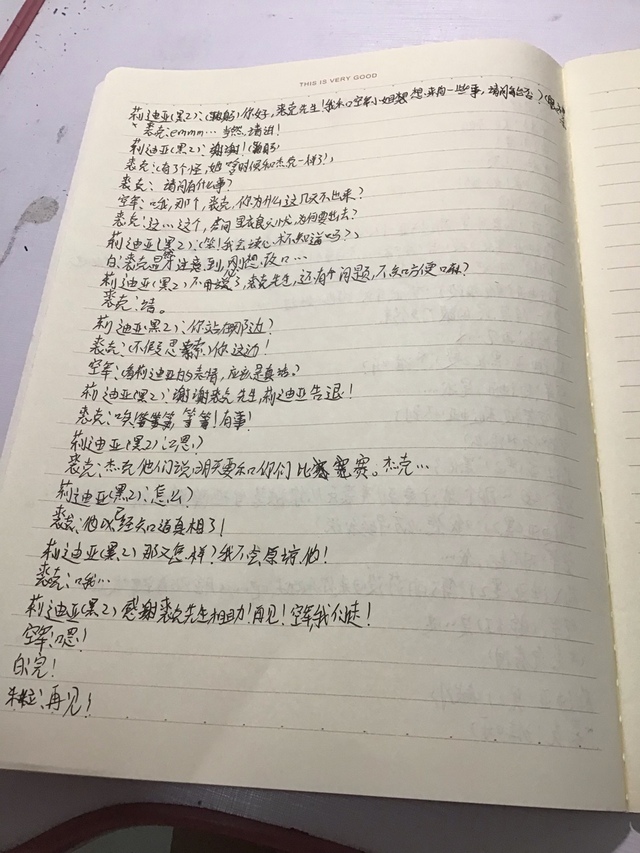 THIS IS VERY GOOD
莉迪亚(黑2):(鞠躬)你好,裘克先生!我和空军小姐想来问一些事,请问能否?
裘克:emmm…当然,请进!
莉迪亚(黑2):谢谢!(鞠躬)
裘克:(有了个怪,她啥时候和杰克一样了!)
裘克:请问有什么事?
空军:哦,那个,裘克,你为什么这几天不出来?
裘克:这…这个,
莉迪亚(黑2):(笑!我会读心术不知道吗?)
白:裘克显然注意到,刚想改口…
莉迪亚(黑2)不用编了,裘克先生,还有个问题,不知方便口麻?
裘克:恩。
莉迪亚(黑2):你站在哪边?
裘克:(不假思索)你这边!
空军:(看莉迪亚的表情,应该是真话?)
莉迪亚(黑2):谢谢裘克先生,莉迪亚告退!
裘克:唉!等等!有事!
莉迪亚(黑2):嗯?
裘克:杰克他们说明天要和你们比赛。杰克…
莉迪亚(黑2):怎么?
裘克:他已经知道真相了!
莉迪亚(黑2)那又怎样?我不会原谅他!
裘克:哦…
莉迪亚(黑2)感谢裘克先生相助!再见!空军,我们走!
空军:嗯!
白:完!
再见!